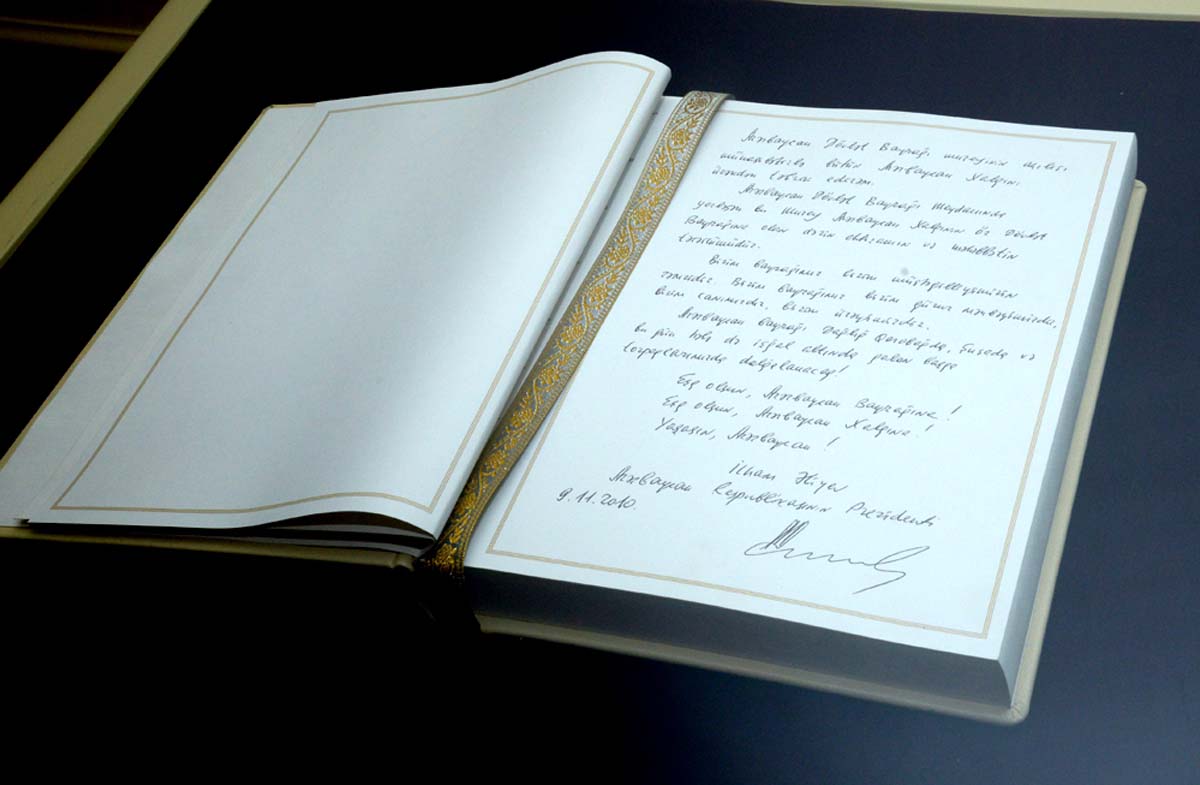 Azərbaycan Dövlət Bayrağı muzeyinin açılışı
münasibətilə bütün Azərbaycan xalqını
ürəkdən təbrik edirəm.
Azərbaycan Dövlət Bayrağı Meydanında
yerləşən bu Muzey Azərbaycan xalqının öz Dövlət
Bayrağına olan dərin ehtiramın və məhəbbətin
təcəssümüdür.
Bizim bayrağımız bizim müstəqilliyimizin
rəmzidir. Bizim bayrağımız bizim qürur mənbəyimizdir,
bizim canımızdır, bizim ürəyimizdir.
Azərbaycan bayrağı Dağlıq Qarabağda, Şuşada və
bu gün hələ də işğal altında qalan başqa
torpaqlarımızda dalğalanacaq!
Eşq olsun, Azərbaycan Bayrağına!
Eşq olsun, Azərbaycan Xalqına!
Yaşasın, Azərbaycan!
İlham Əliyev
Azərbaycan Respublikasının Prezidenti
9.11.2010.